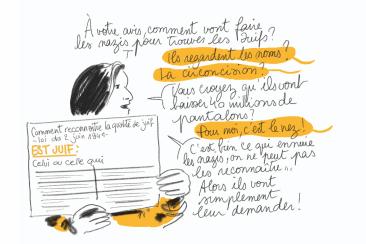 À votre avis, comment vont faire
les nazis pour trouver les Juifs?
Ils regardent les noms?
La circoncision?
Vous croyez qu'ils vont
baisser 20 millions de
pantalons?
Pour moi, c'est le nez!
C'est bien ce qui ennuie
les nazis, on ne peut pas
les reconnaître...
Alors ils vont
simplement
leur demander!
Comment reconnaître la qualité de juif
- loi du 2 juin 1941 -
EST JUIF:
Celui ou celle qui